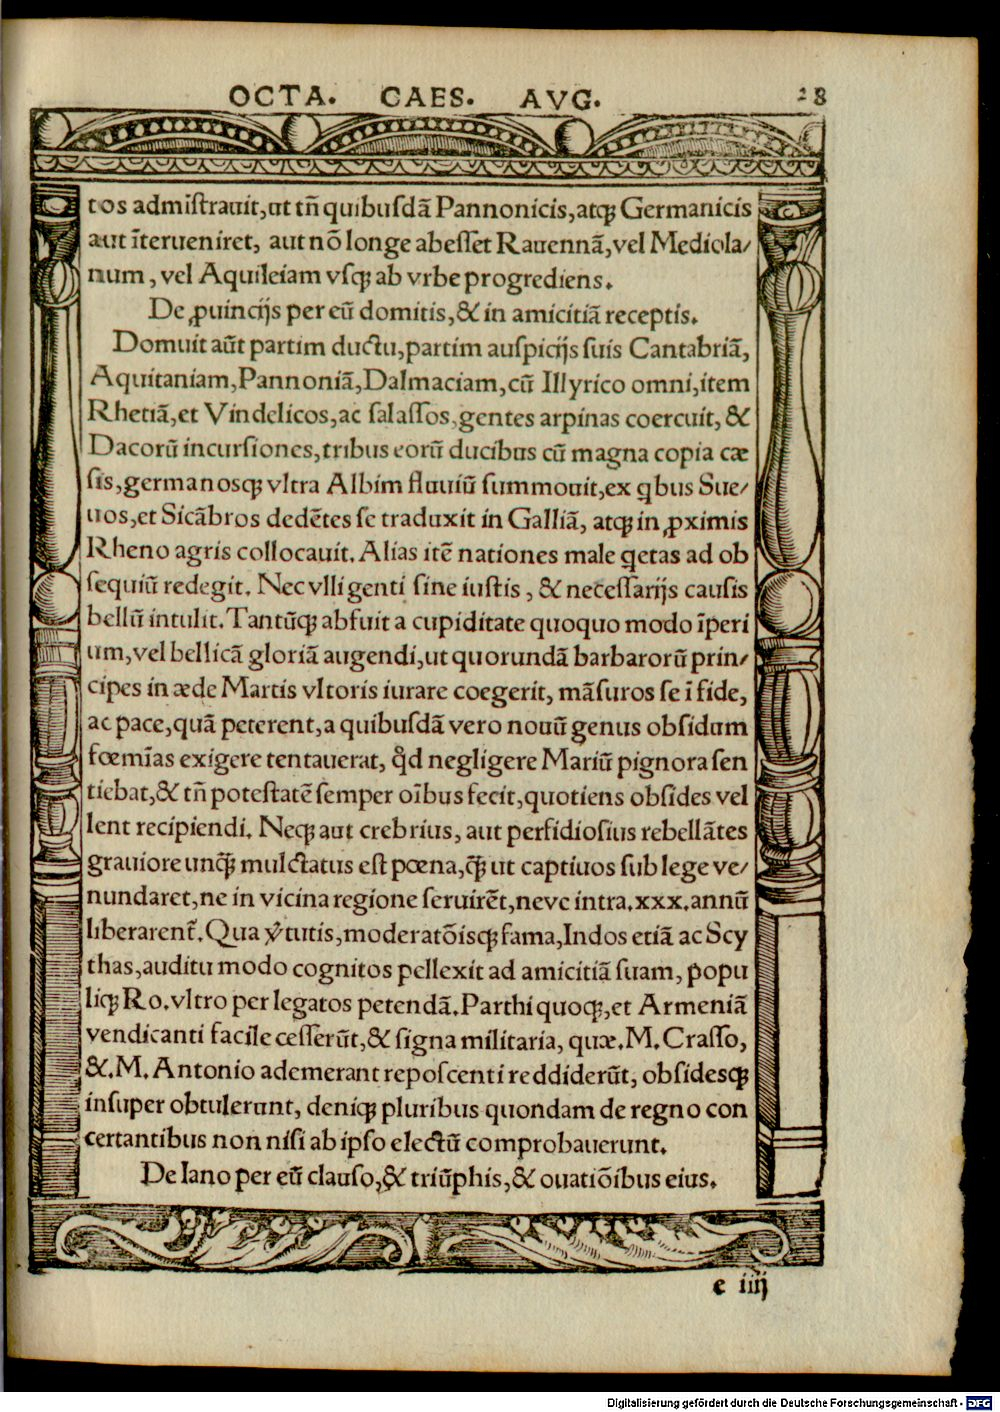 OCTA. CAES. AVG. 28
tos admīstrauit, ut tñ quibuſdā Pannonicis, atqꝫ Germanicis
aut īterueniret, aut nō longe abeſſet Rauennā, vel Mediola/
num, vel Aquileiam vſqꝫ ab vrbe progrediens.
De ꝓuincijs per eū domitis, & in amicitiā receptis.
Domuit aūt partim ductu, partim auſpicijs ſuis Cantabriā,
Aquitaniam, Pannoniā, Dalmaciam, cū Illyrico omni, item
Rhetiā, et Vindelicos, ac ſalaſſos, gentes arpinas coercuit, &
Dacorū incurſiones, tribus eorū ducibus cū magna copia cæ
ſis, germanosqꝫ vltra Albim fluuiū ſummouit, ex qbus Sue/
uos, et Sicābros dedētes ſe traduxit in Galliā, atqꝫ in ꝓximis
Rheno agris collocauit. Alias itē nationes male qetas ad ob
ſequiū redegit. Nec vlli genti ſine iuſtis, & neceſſarijs cauſis
bellū intulit. Tantūqꝫ abfuit a cupiditate quoquo modo īperi
um, vel bellicā gloriā augendi, ut quorundā barbarorū prin/
cipes in æde Martis vltoris iurare coegerit, māſuros ſe ī fide,
ac pace, quā peterent, a quibuſdā vero nouū genus obſidum
fœmīas exigere tentauerat, qd̓ negligere Mariū pignora ſen
tiebat, & tñ poteſtatē ſemper oībus fecit, quotiens obſides vel
lent recipiendi. Neqꝫ aut crebrius, aut perfidioſius rebellātes
grauiore unqꝫ̄ mulctatus eſt pœna, qꝫ̄ ut captiuos ſub lege ve/
nundaret, ne in vicina regione ſeruirēt, neve intra .xxx. annū
liberarent̃. Qua v̓tutis, moderatōisqꝫ fama, Indos etiā ac Scy
thas, auditu modo cognitos pellexit ad amicitiā ſuam, popu
liqꝫ Ro. vltro per legatos petendā. Parthi quoqꝫ, et Armeniā
vendicanti facile ceſſerūt, & ſigna militaria, quæ. M. Craſſo,
&. M. Antonio ademerant repoſcenti reddiderūt, obſidesqꝫ
inſuper obtulerunt, deniqꝫ pluribus quondam de regno con
certantibus non niſi ab ipſo electū comprobauerunt.
De Iano per eū clauſo, & triūphis, & ouatiōibus eius.
e iiij
Digitalisierung gefördert durch die Deutsche Forschungsgemeinschaft - DFG